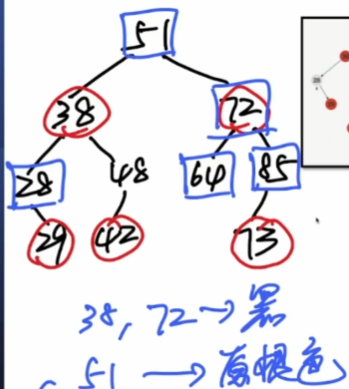 51
38 72
28 48 64 85
29 42 73
38, 72→黑
51 → 原根色